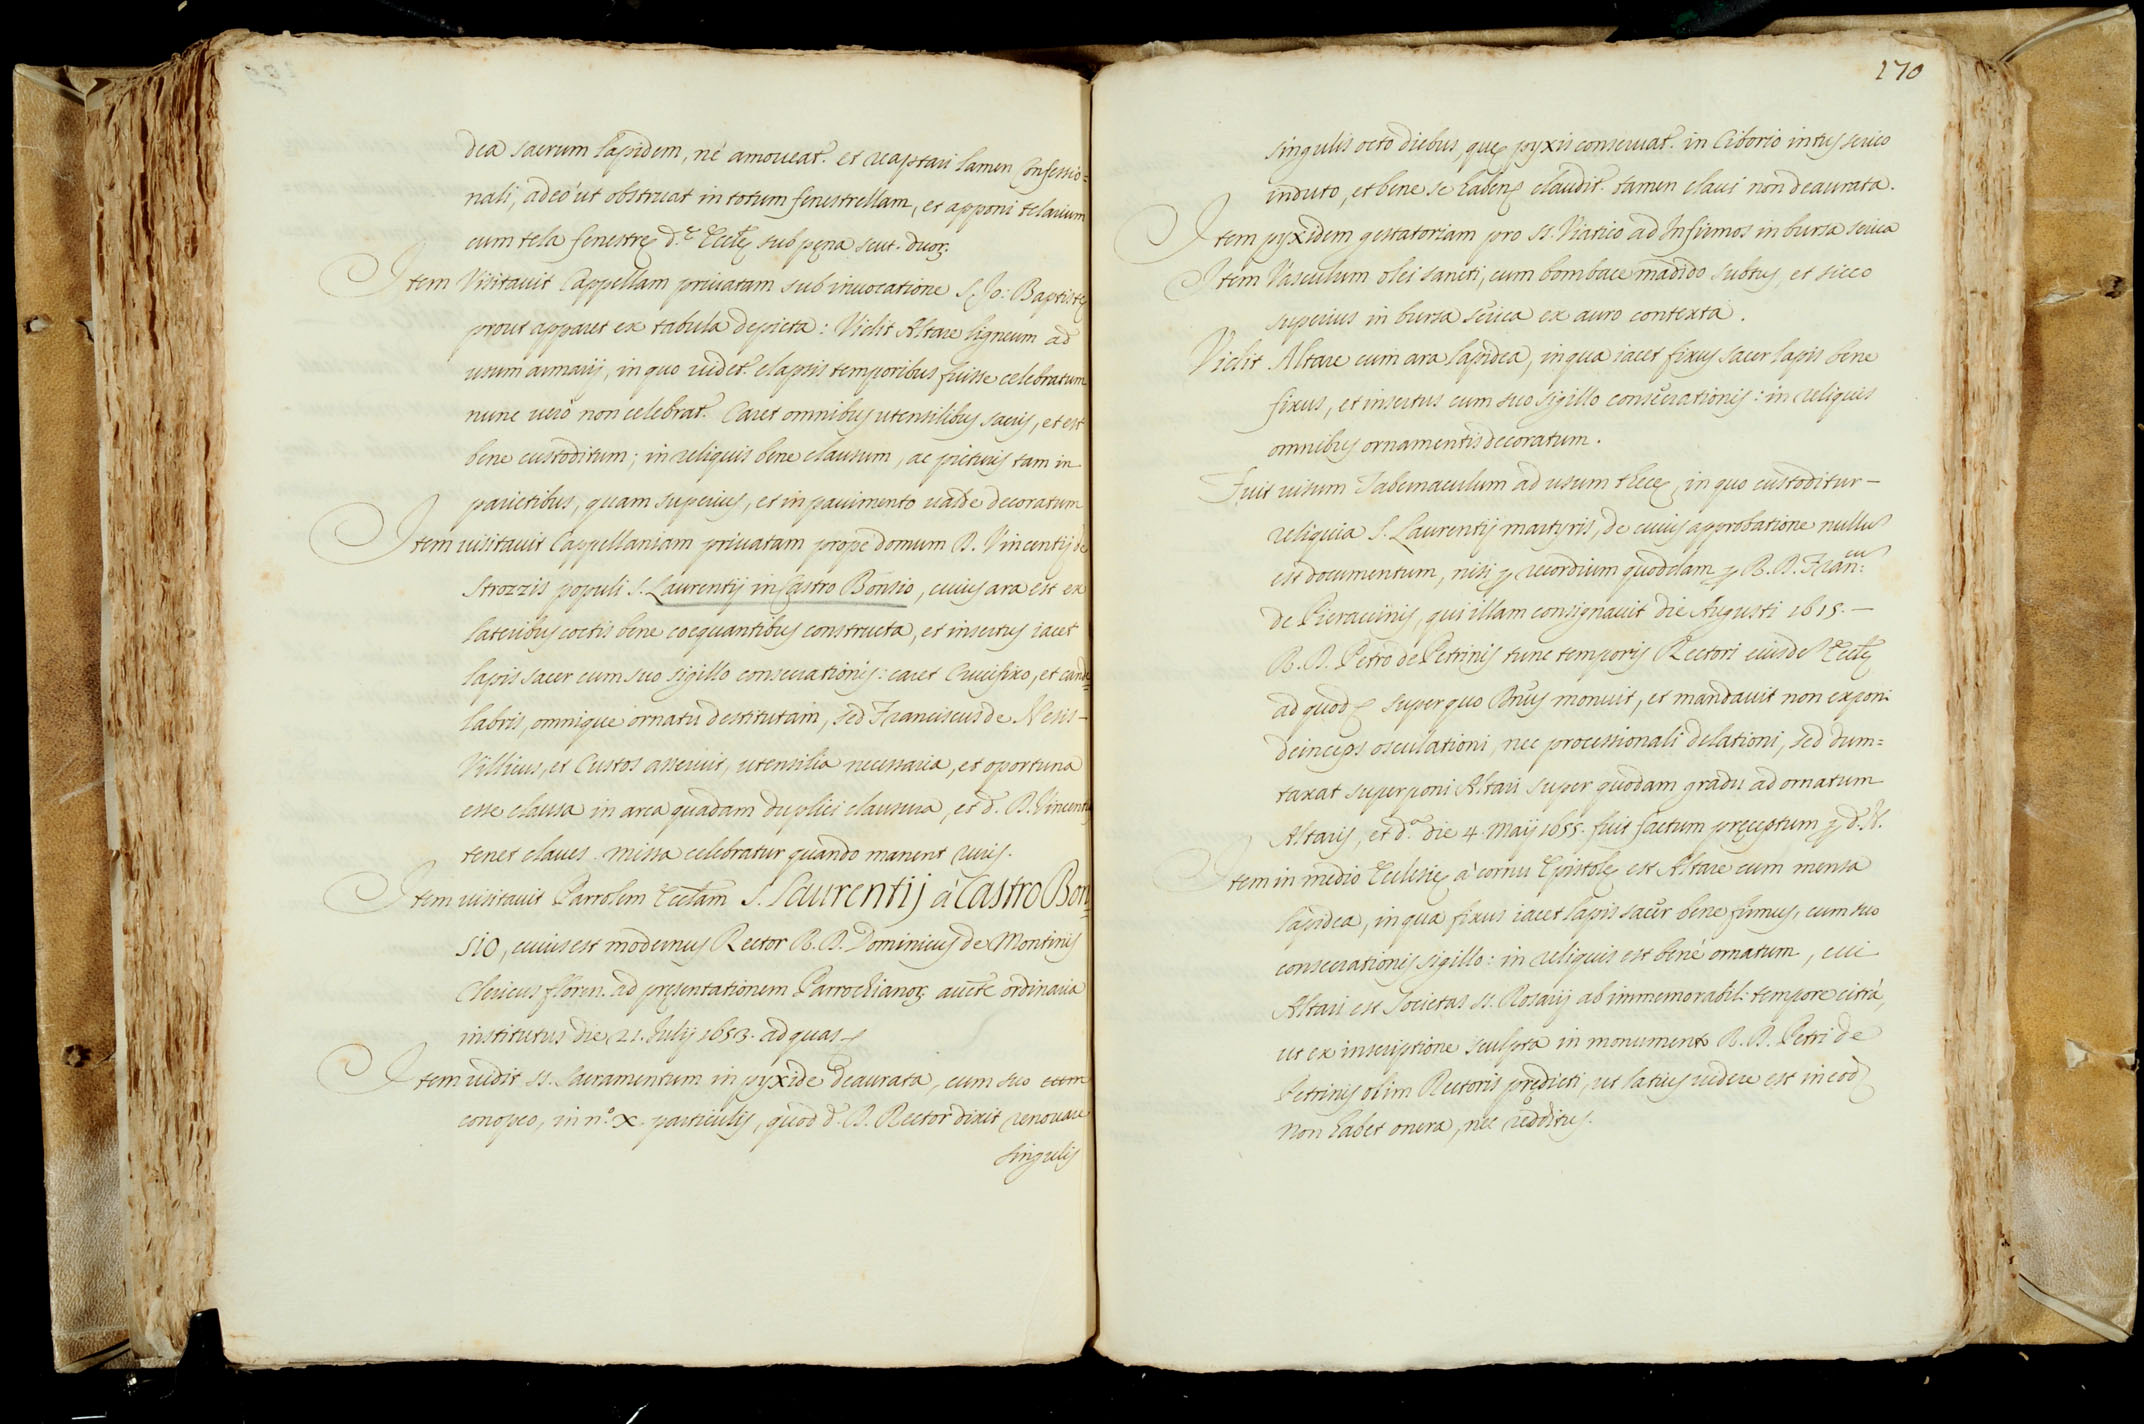 dea sacrum lapidem, né amoueat.r et reaptari lamen Confessio=
nali, adeo ut obstruat in totum fenestrellam, et apponi telarium
cum tela fenestrę d.ę Eccl̃ę sub pęna scut. duoꝝ.
Item Visitauit Cappellam priuatam sub inuocatione S. Jo: Baptistę
prout apparet ex tabula depicta: Vidit Altare ligneum ad
usum armarij, in quo uidet.r elapsis temporibus fuisse celebratum
nunc uero non celebrat.r Caret omnibus utensilibus sacris, et est
bene custoditum; in reliquis bene clausum, ac picturis tam in
parietibus, quam superius, et in pauimento ualde decoratum
Item uisitauit Cappellaniam priuatam prope domum D. Vincentij de
Strozzis populi S. Laurentij in Castro Bonsio, cuius ara est ex
lateribus coctis bene coequantibus constructa, et insertus iacet
lapis sacer cum suo sigillo consecrationis: caret Crucifixo, et cande=
labris, omnique ornatu destitutam, sed Franciscus de Nesis -
Villicus, et Custos asseruit, utensilia necessaria, et oportuna
esse clausa in arca quadam duplici clausura, et d. D. Vincentius
tenet claues. missa celebratur quando manent ruris.
Item uisitauit Parrolem Eccl̃am S. Laurentij á Castro Bon=
sio, cuius est modernus Rector R. D. Dominicus de Montinis
Clericus floren. ad pręsentationem Parrochianoꝝ auct̃e ordinaria
institutus die 21. Julij 1653. ad quas
Item uidit SS. Sacramentum in pyxide deaurata, cum suo
conopeo, in n.o X particulis, quod d. D. Rector dixit renouare
singulis
170
singulis octo diebus, quę pyxis conseruat.r in Ciborio intus serico
induto, et bene se habens claudit.r tamen claui non deaurata.
Item pyxidem gestatoriam pro SS. Viatico ad Infirmos in bursa serica
Item Vasculum olei sancti, cum bombace madido subtus, et sicco
superius in bursa serica ex auro contexta.
Vidit Altare cum ara lapidea, in qua iacet fixus sacer lapis bene
fixus, et insertus cum suo sigillo consecrationis: in reliquis
omnibus ornamentis decoratum.
Fuit uisum Tabernaculum ad usum thecę, in quo custoditur -
reliquia S. Laurentij martyris, de cuius approbatione nullũ
est documentum, nisi ꝑ recordium quoddam ꝑ R. D. Fran:cũ
de Pieraccinis, qui illam consignauit die Augusti 1615. -
R. D. Petro de Petrinis tunc temporis Rectori eiusdẽ Eccl̃ę
ad quod, super quo Dñus monuit, et mandauit non exponi
deinceps osculationi, nec processionali delationi, sed dum=
taxat superponi Altari super quodam gradu ad ornatum
Altaris, et d.a die 4. Maij 1655. fuit factum pręceptum ꝑ d. N.
Item in medio Ecclesię á cornu Epistolę est Altare cum mensa
lapidea, in qua fixus iacet lapis sacer bene firmus, cum suo
consecrationis sigillo: in reliquis est bené ornatum, cui
Altari est Societas SS. Rosarij ab immemorabil: tempore citrà,
ut ex inscriptione sculpta in monumento R. D. Petri de
Petrinis olim Rectoris prędicti, ut latius uidere est in eod.
Non habet onera, nec redditus.